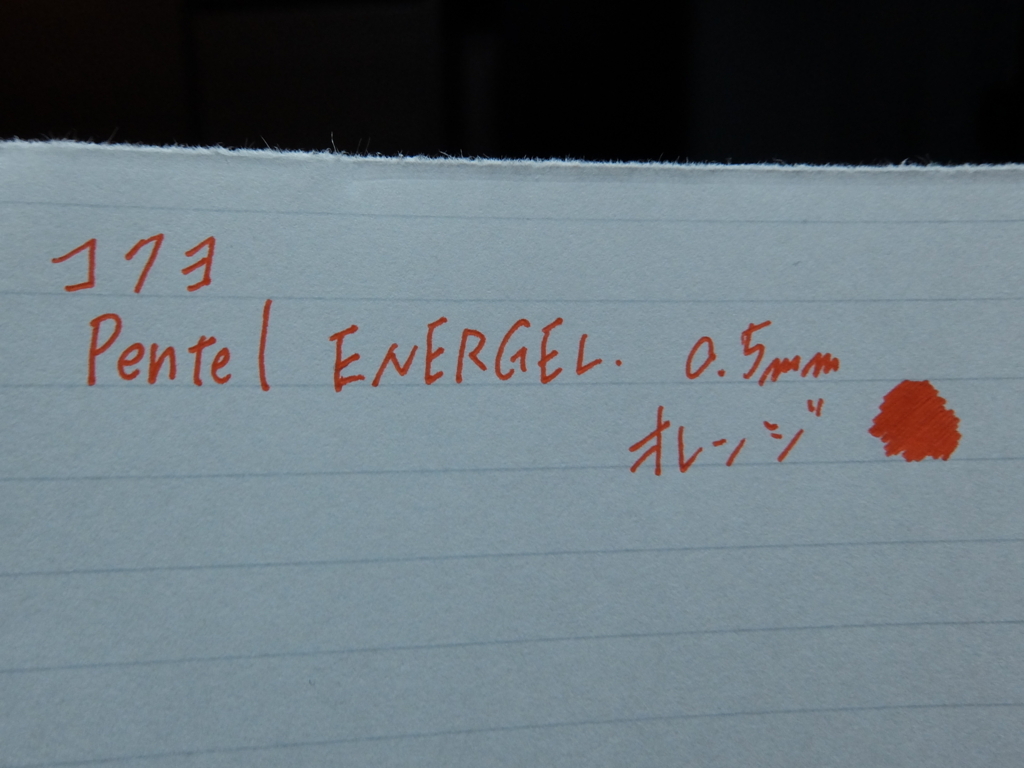 コクヨ
Pentel ENERGEL. 0.5mm
オレンジ